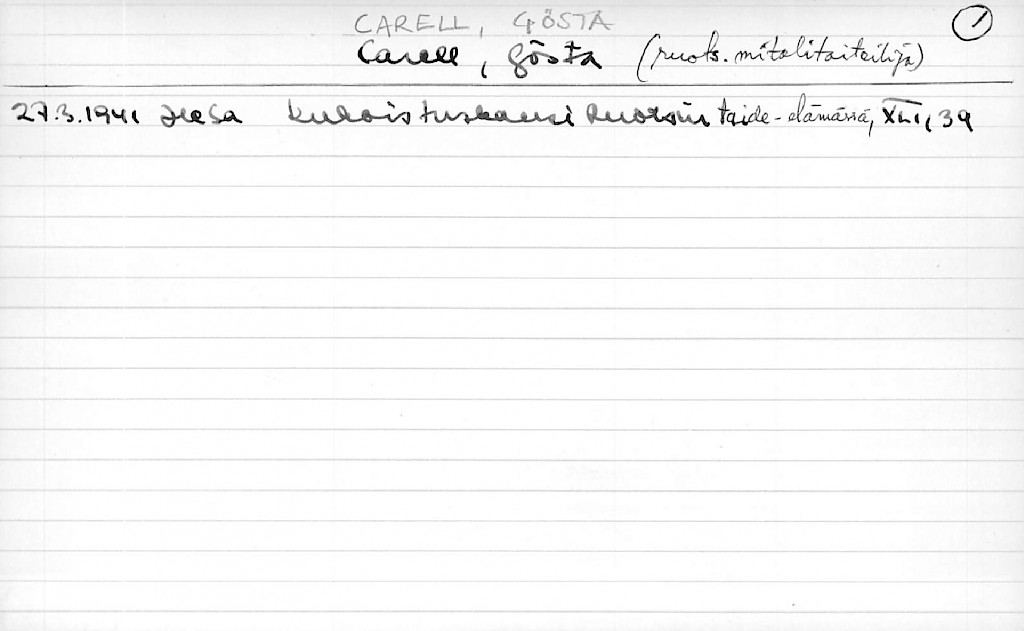 CARELL, GÖSTA
1
Carell, Gösta (ruots. mitalitaiteilija)
27.3.1941 HeSa Kukoistuskausi Ruotsin taide-elämässä, XLI, 39